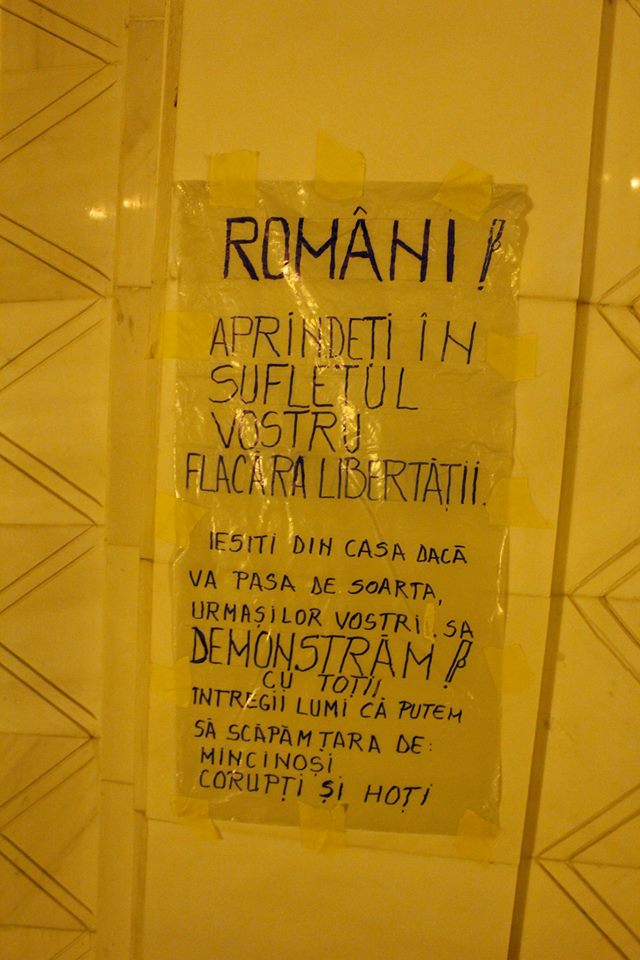 ROMÂNI!
APRINDEȚI ÎN
SUFLETUL
VOSTRU
FLACĂRA LIBERTĂȚII.
IESITI DIN CASA DACĂ
VA PASA DE SOARTA,
URMAȘILOR VOSTRII, SA
DEMONSTRĂM!
CU TOȚII
INTREGII LUMI CĂ PUTEM
SĂ SCĂPĂM ȚARA DE:
MINCINOȘI
CORUPȚI ȘI HOȚI